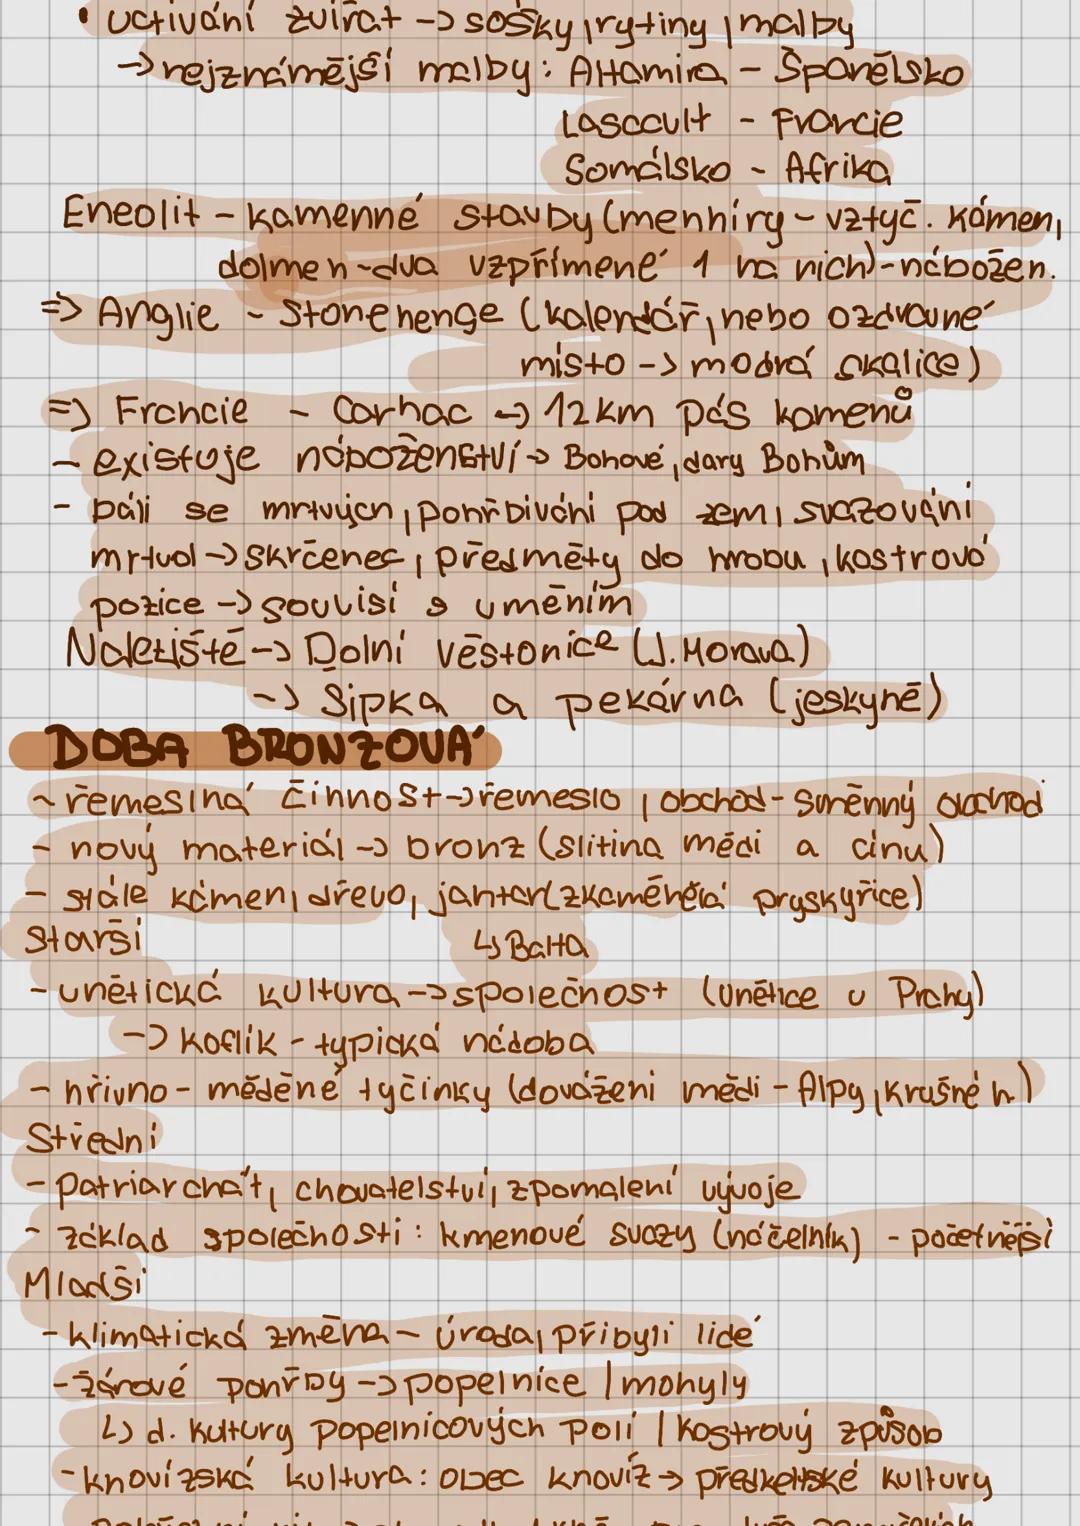 • uctívání zvířat -> sošky, rytiny, malby
-> nejznámější malby: Altamira - Španělsko
Lascault - Francie
Somálsko - Afrika
Eneolit - kamenné stavby (menhiry - vztyč. kámen,
dolmen - dva vzpřímené 1 na nich) - nábožen.
=> Anglie - Stonehenge (kalendář, nebo ozdravné
místo -> modrá skalice)
=> Francie - Carnac -> 12 km pás kamenů
- existuje náboženství -> Bohové, dary Bohům
- báli se mrtvých, pohřbívání pod zem, svazování
mrtvol -> skrčenec, předměty do hrobu, kostrová
pozice -> souvisí s uměním
Naleziště -> Dolní věstonice (J. Morava)
-> Šipka a pekárna (jeskyně)
DOBA BRONZOVÁ
- řemeslná činnost -> řemeslo, obchod - směnný obchod
- nový materiál -> bronz (slitina mědi a cínu)
- stále kámen, dřevo, jantar (zkamenělá pryskyřice)
Starší ↳ Balta
- únětická kultura -> společnost (Únětice u Prahy)
-> koflík - typická nádoba
- hřivno - měděné tyčinky (dovážení mědi - Alpy, Krušné h.)
Střední
- patriarchát, chovatelství, zpomalení vývoje
- základ společnosti: kmenové svazy (náčelník) - početnější
Mladší
- klimatická změna - úroda, přibyli lidé
- žárové pohřby -> popelnice / mohyly
↳ d. kultury popelnicových polí / kostrový způsob
- knovízská kultura: obec knovíz -> předkeltské kultury